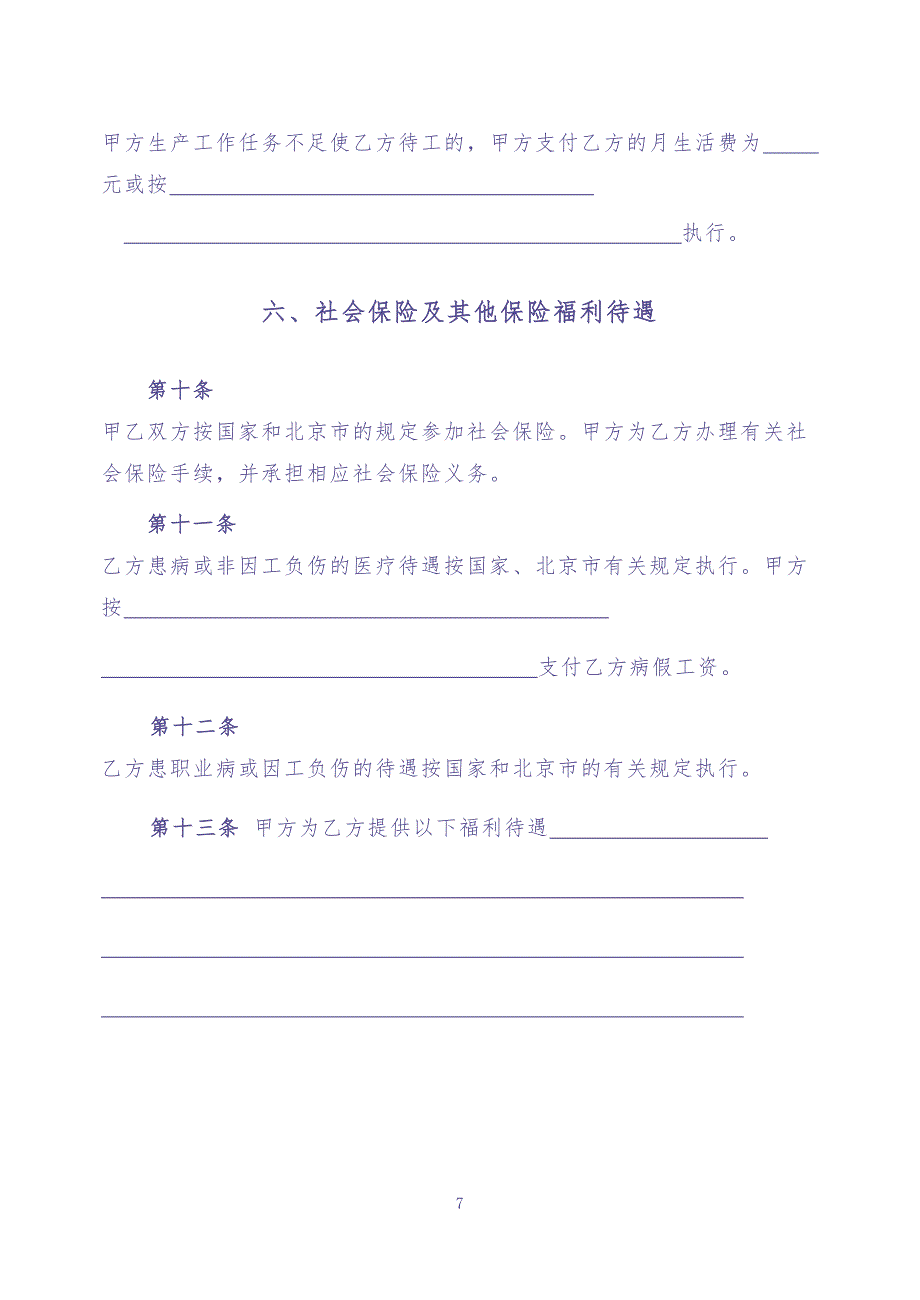 甲方生产工作任务不足使乙方待工的，甲方支付乙方的月生活费为_____
元或按_______________________________________
___________________________________________________执行。
六、社会保险及其他保险福利待遇
第十条
甲乙双方按国家和北京市的规定参加社会保险。甲方为乙方办理有关社
会保险手续，并承担相应社会保险义务。
第十一条
乙方患病或非因工负伤的医疗待遇按国家、北京市有关规定执行。甲方
按____________________________________________
________________________________________支付乙方病假工资。
第十二条
乙方患职业病或因工负伤的待遇按国家和北京市的有关规定执行。
第十三条 甲方为乙方提供以下福利待遇____________________
___________________________________________________________
___________________________________________________________
___________________________________________________________
7